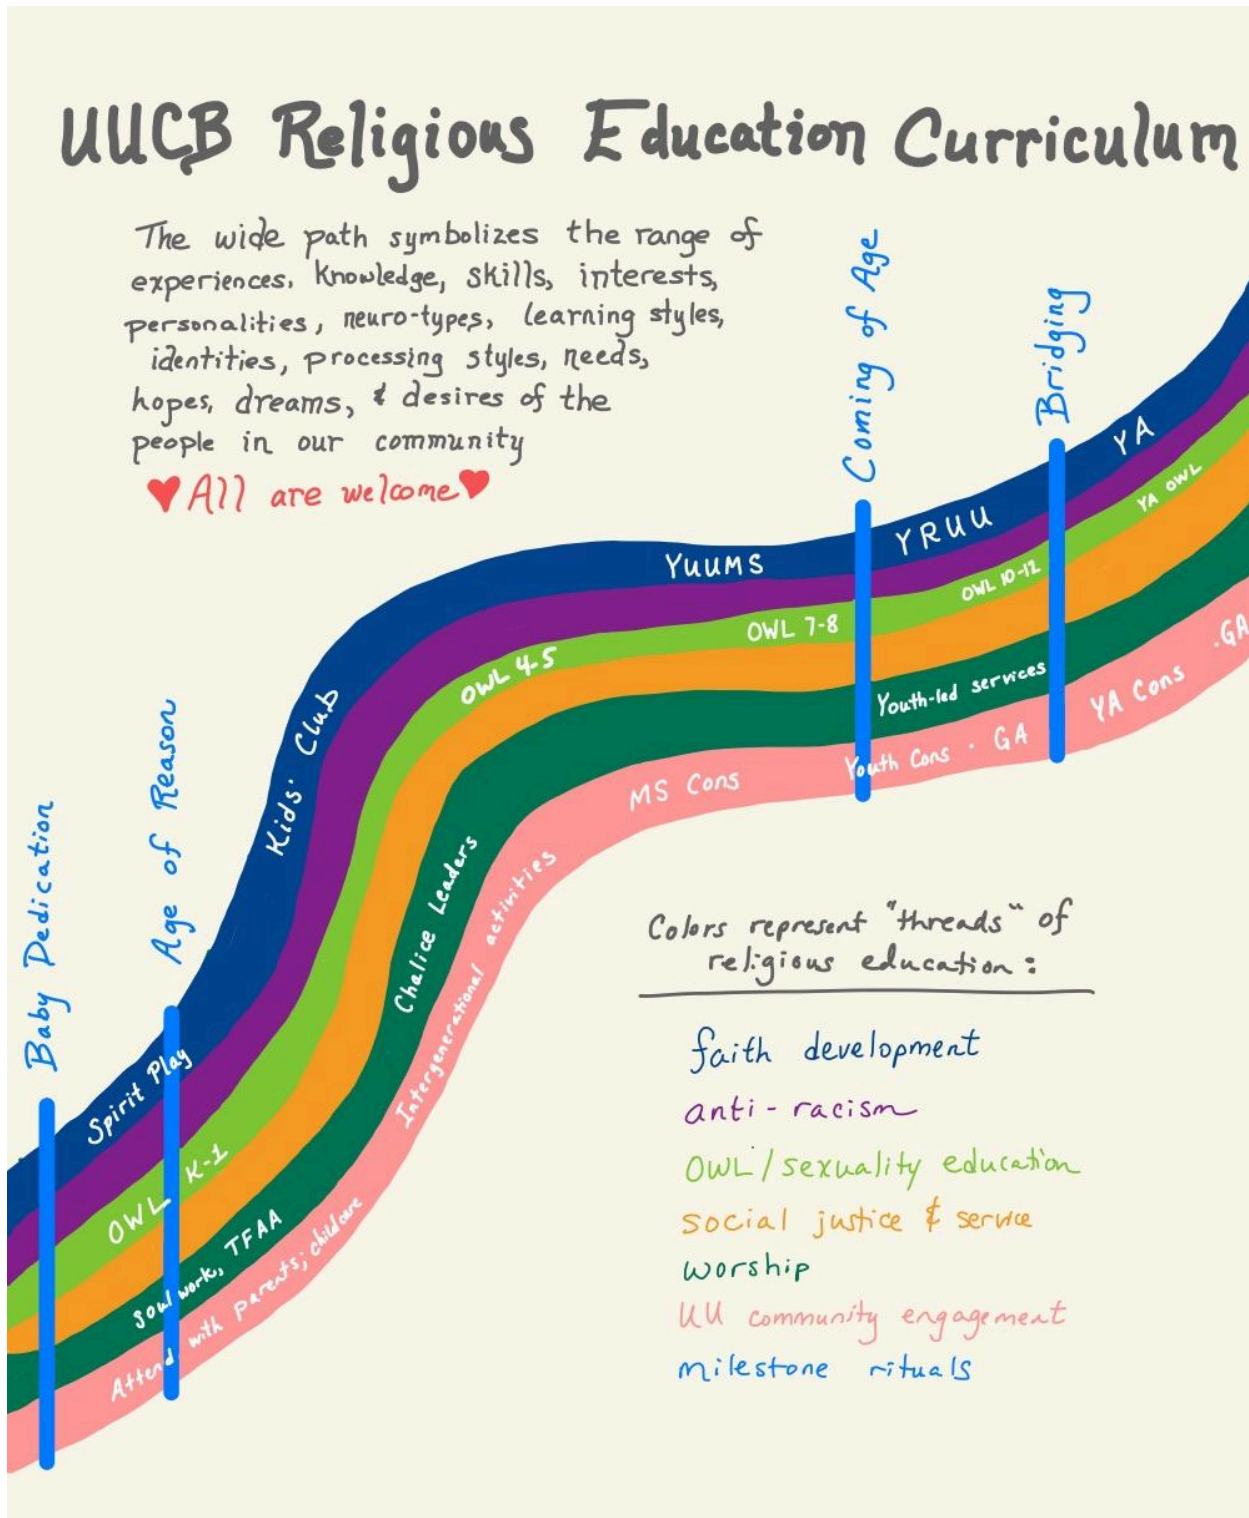 UUCB Religious Education Curriculum
The wide path symbolizes the range of
experiences, knowledge, skills, interests,
personalities, neuro-types, learning styles,
identities, processing styles, needs,
hopes, dreams, & desires of the
people in our community
♥ All are welcome ♥
Baby Dedication
Age of Reason
Coming of Age
Bridging
Spirit Play
Kids' Club
YUUMS
YRUU
YA
OWL K-1
OWL 4-5
OWL 7-8
OWL 10-12
YA OWL
Soulwork, TFAA
Chalice Leaders
Youth-led services
Attend with parents; childcare
Intergenerational activities
MS Cons
Youth Cons · GA
YA Cons · GA
Colors represent "threads" of
religious education:
faith development
anti-racism
OWL/sexuality education
social justice & service
worship
UU community engagement
milestone rituals